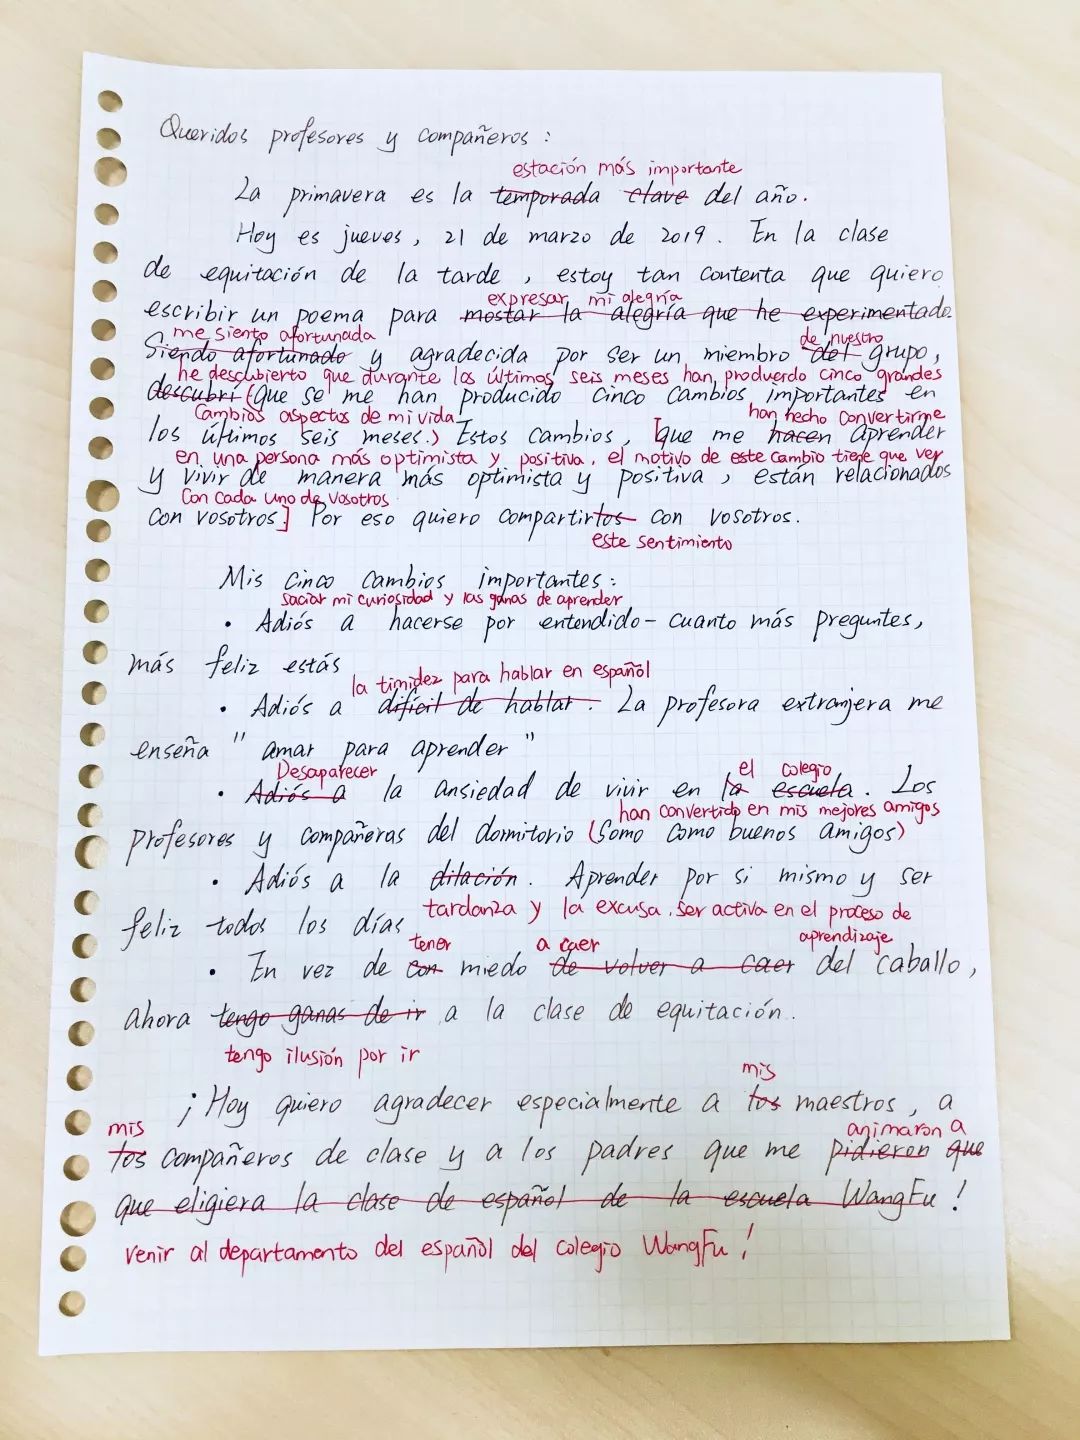 Queridos profesores y compañeros :
estación más importante
La primavera es la temporada clave del año.
Hoy es jueves, 21 de marzo de 2019. En la clase
de equitación de la tarde, estoy tan contenta que quiero
expresar mi alegría
escribir un poema para mostar la alegría que he experimentado.
me siento afortunada
de nuestro
Siendo afortunado y agradecida por ser un miembro del grupo,
he descubierto que durante los últimos seis meses han producrdo cinco grandes
descubrí (que se me han producido cinco cambios importantes en
cambios aspectos de mi vida
han hecho convertirme
los últimos seis meses.) Estos cambios, [que me hacen aprender
en una persona más optimista y positiva, el motivo de este cambio tiene que ver
y vivir de manera más optimista y positiva, están relacionados
con cada uno de vosotros
con vosotros] Por eso quiero compartirlos con vosotros.
este sentimiento
Mis cinco cambios importantes:
saciar mi curiosidad y las ganas de aprender
• Adiós a hacerse por entendido - cuanto más preguntes,
más feliz estás
la timidez para hablar en español
• Adiós a difícil de hablar. La profesora extranjera me
enseña " amar para aprender "
Desaparecer
el colegio
• Adiós a la ansiedad de vivir en la escuela. Los
han convertido en mis mejores amigos
profesores y compañeras del dormitorio (Somo como buenos amigos)
• Adiós a la dilación. Aprender por si mismo y ser
tardanza y la excusa. Ser activa en el proceso de
feliz todos los días
aprendizaje
tener
a caer
• En vez de con miedo de volver a caer del caballo,
ahora tengo ganas de ir a la clase de equitación.
tengo ilusión por ir
mis
¡Hoy quiero agradecer especialmente a los maestros, a
mis
animaron a
los compañeros de clase y a los padres que me pidieron que
que eligiera la clase de español de la escuela WangFu!
venir al departamento del español del colegio WangFu!